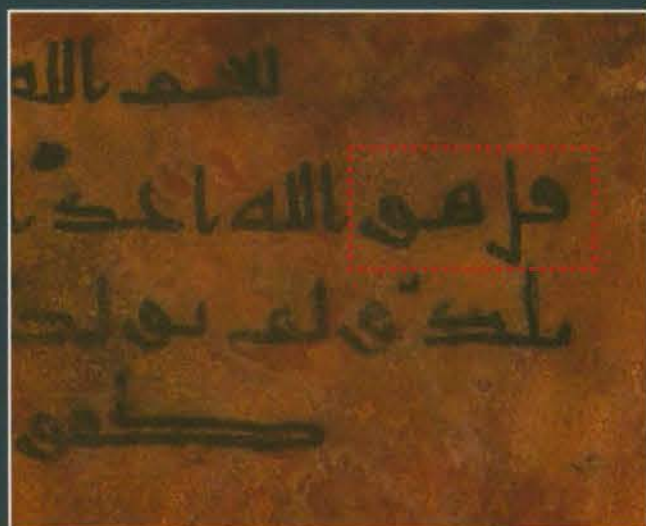 بسم الله
قل هو الله احد
يلد و لم يولد
كفو